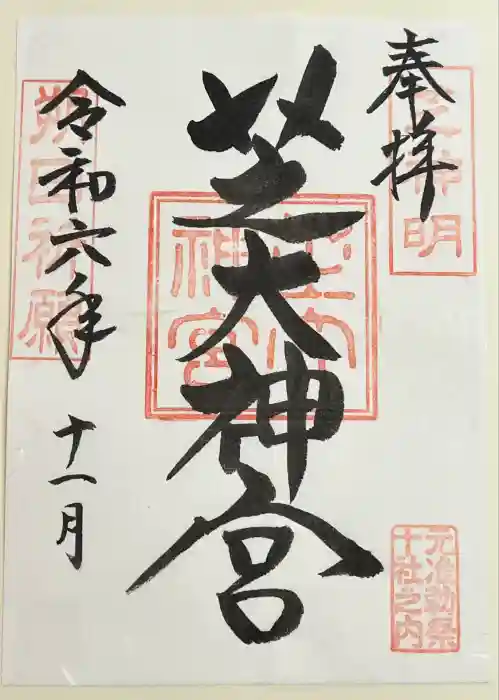 奉拝
芝神明
芝大神宮
元准勅祭
十社之内
令和六年
十一月